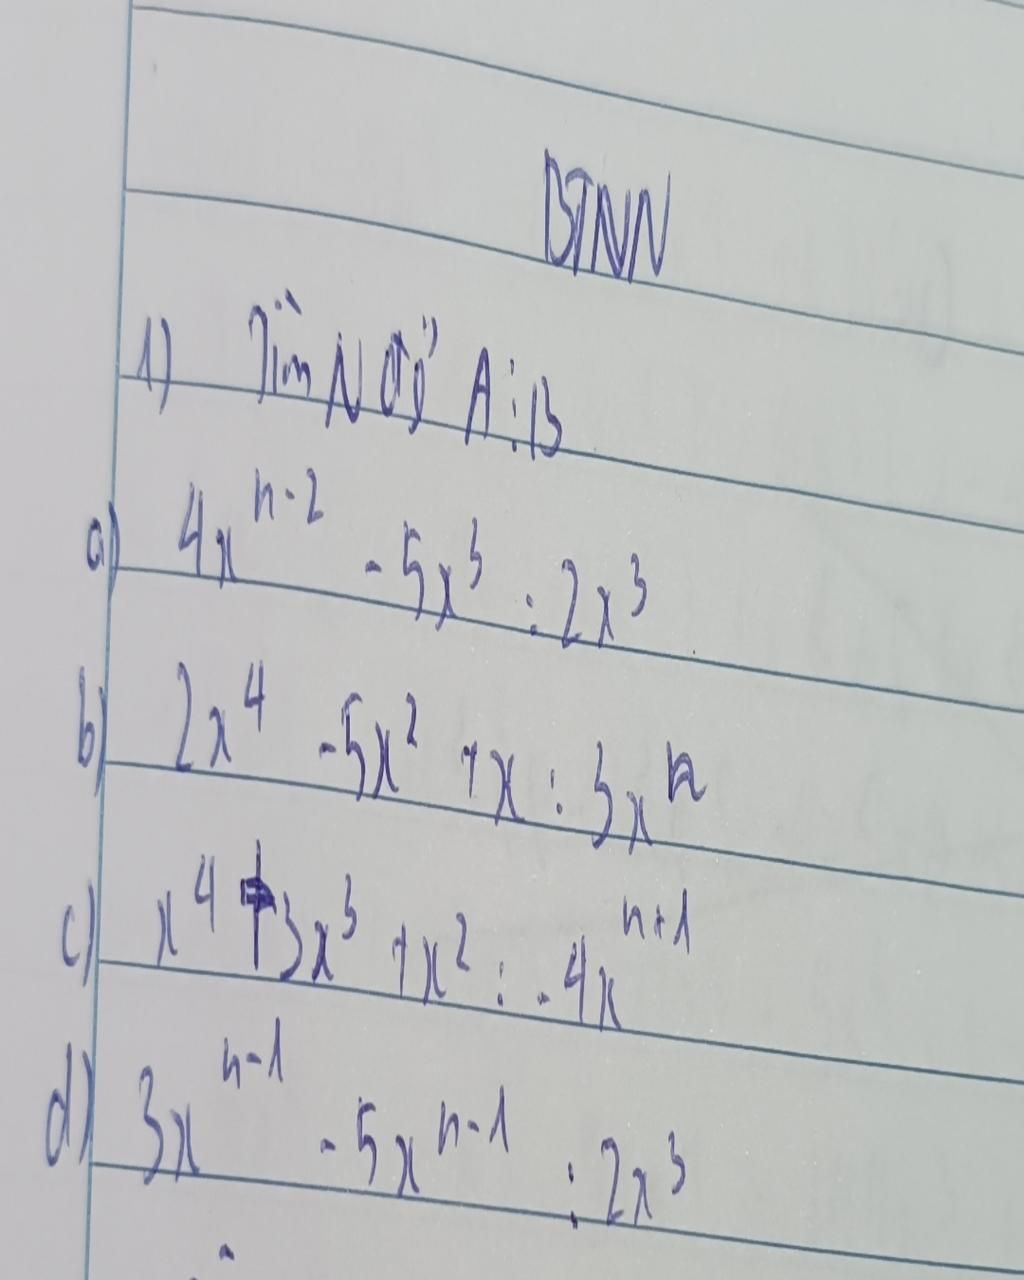 BTNN
1) Tìm N để A ⋮ B
a) 4xⁿ⁻² - 5x³ : 2x³
b) 2x⁴ - 5x² + x : 3xⁿ
c) x⁴ + 3x³ + x² : - 4xⁿ⁺¹
d) 3xⁿ⁻¹ - 5xⁿ⁻¹ : 2x³